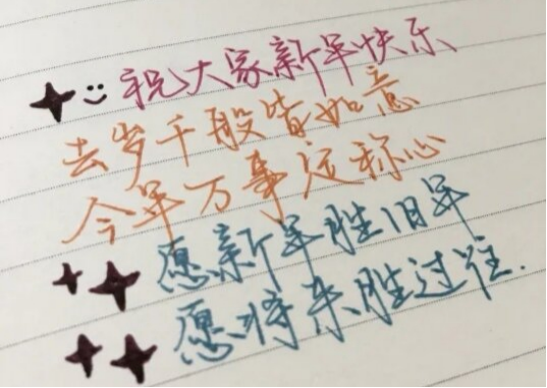 祝大家新年快乐
去岁千般皆如意
今年万事定称心
愿新年胜旧年
愿将来胜过往.